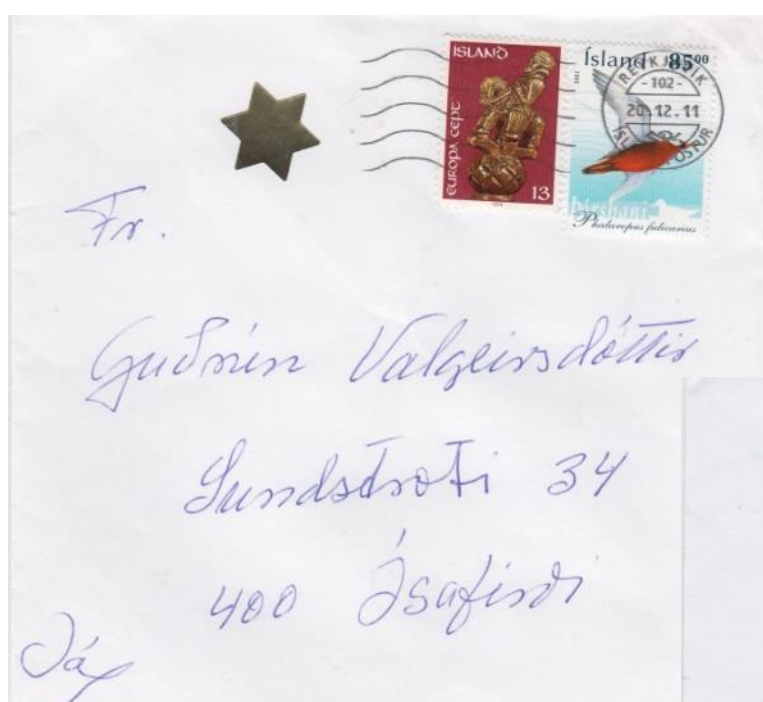 ÍSLAND
EUROPA CEPT
13
Ísland 85⁰⁰
REYKJAVÍK
- 102 -
20.12.11
ÍSLANDSPÓSTUR
Þórshani
Phalaropus fulicarius
Fr.
Guðrún Valgeirsdóttir
Sundstræti 34
400 Ísafirði